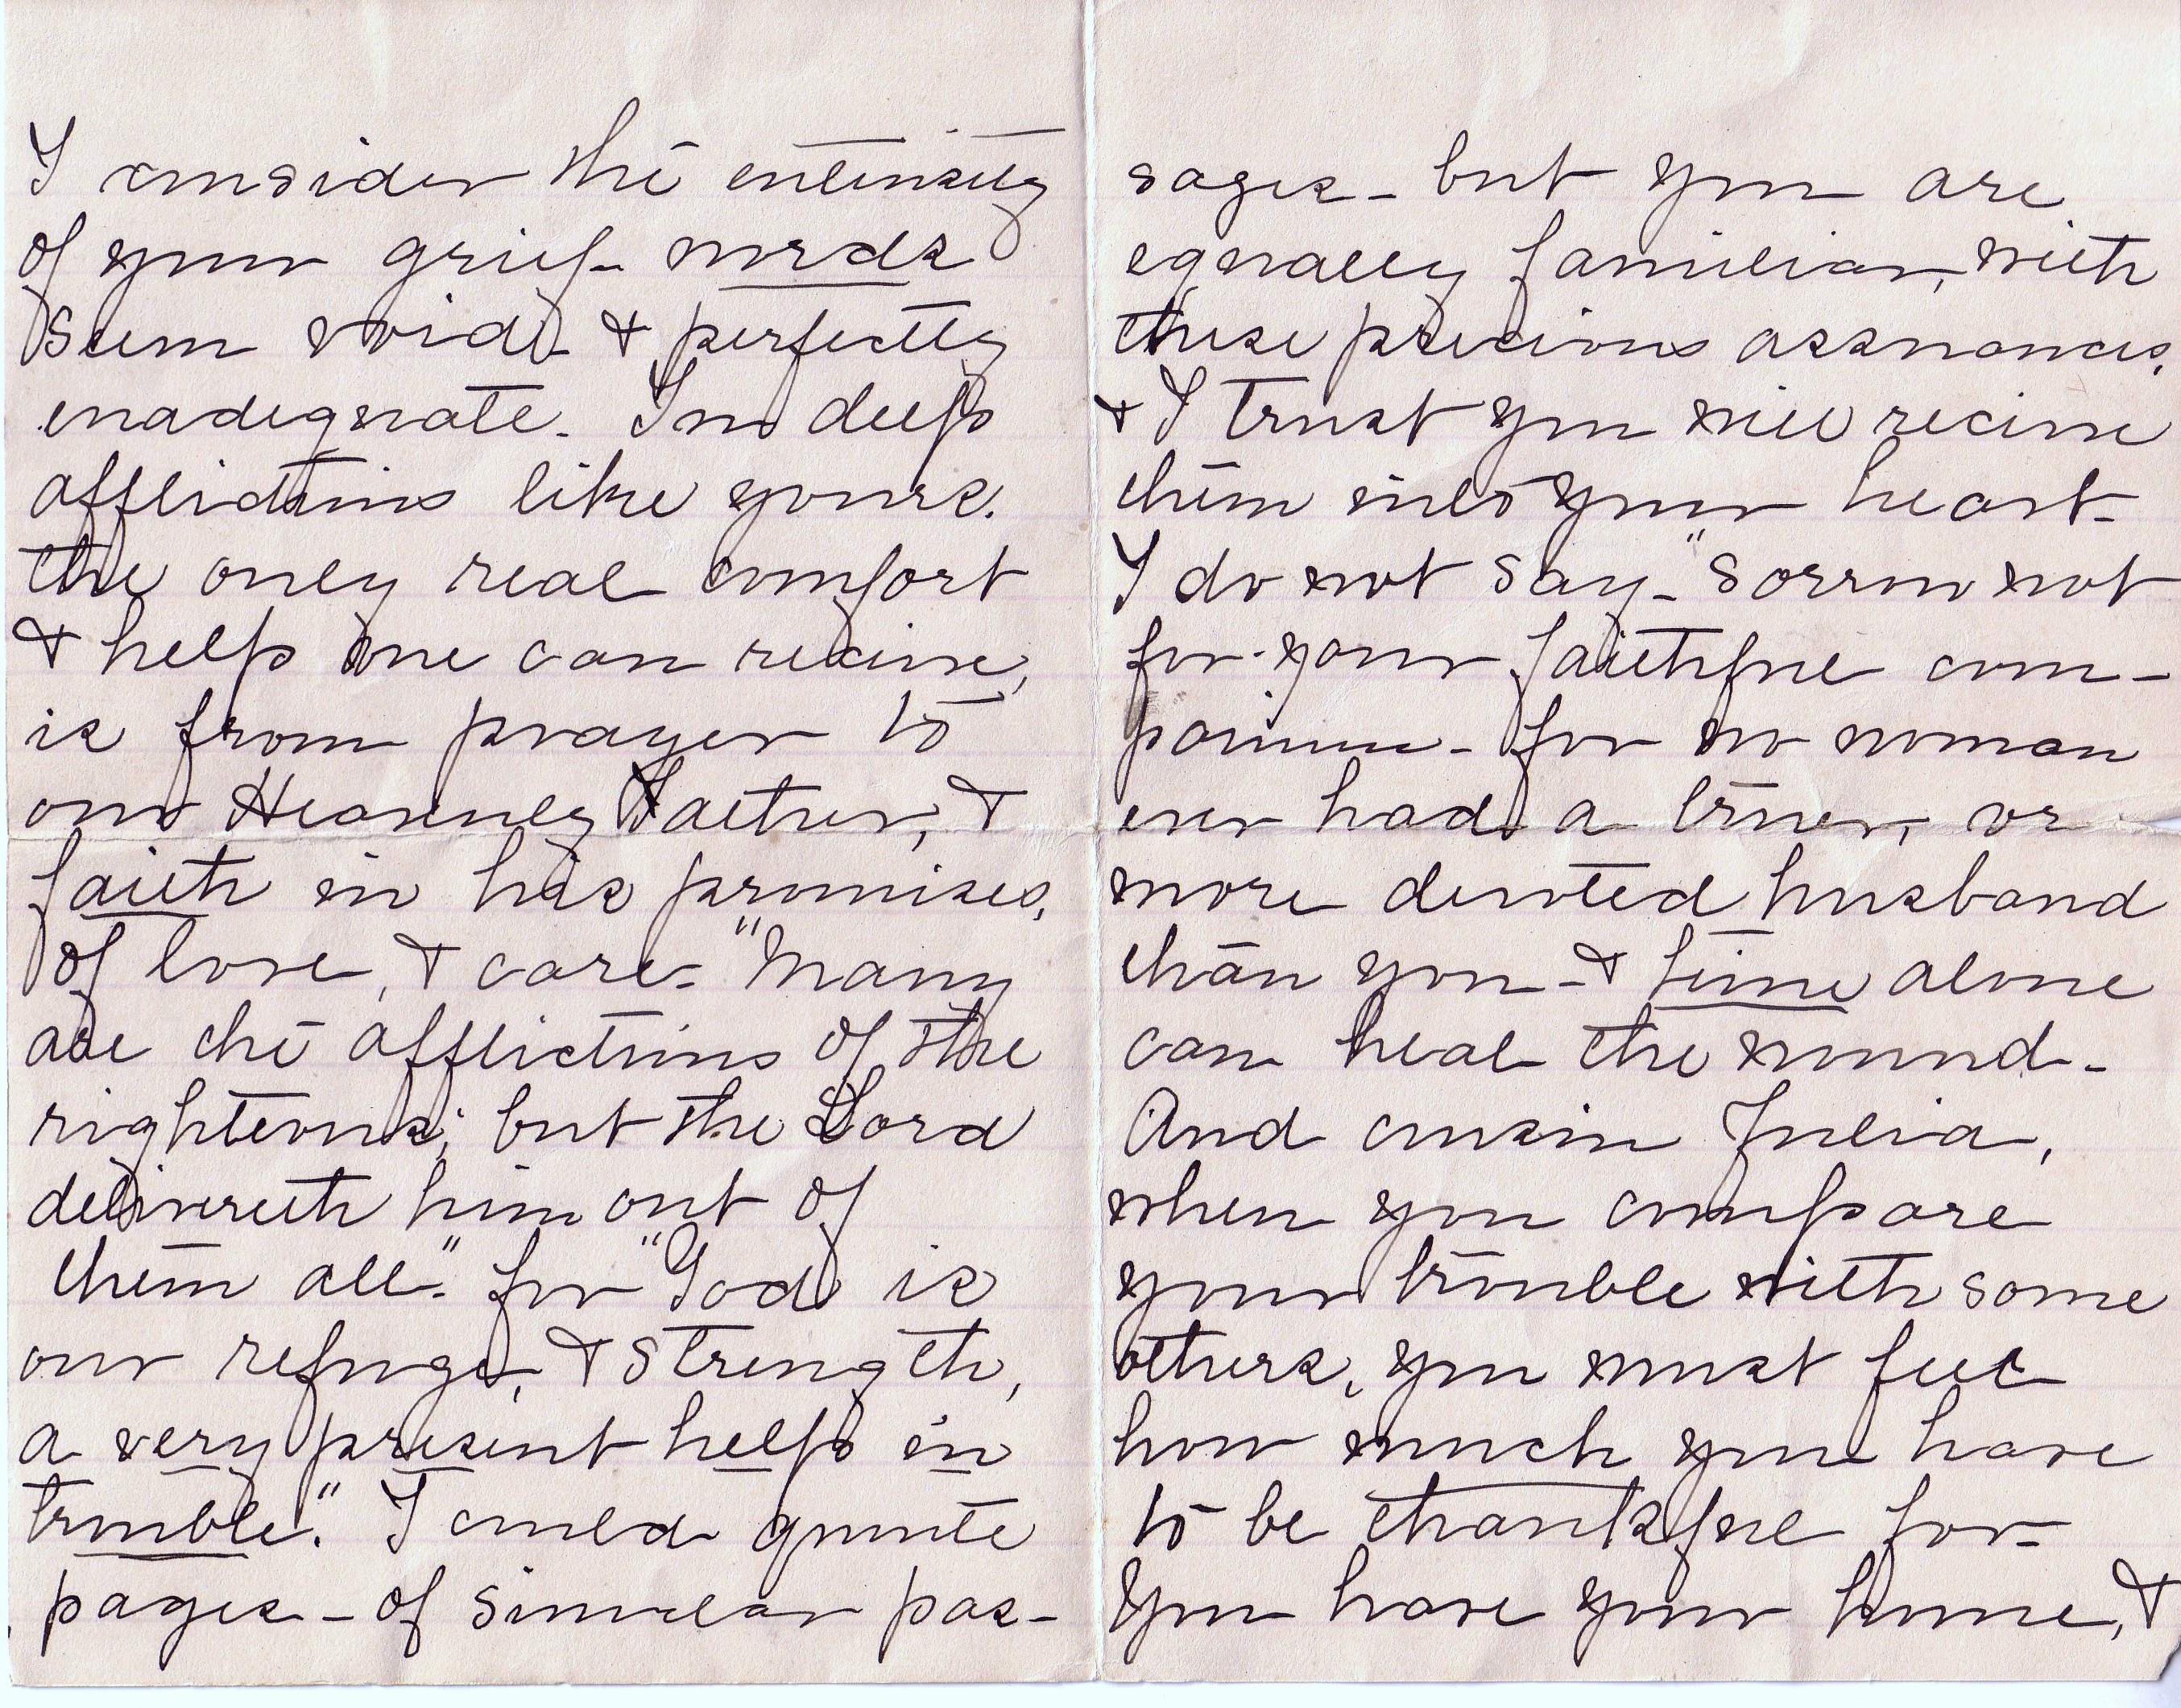 I consider the entensity
of your grief - words
seem void - & perfectly
enadequate. In deep
afflictions like yours.
the only real comfort
& help one can receive,
is from prayer to
our Heavenly Father, &
faith in his promises,
of love, & care - "Many
are the afflictions of the
righteous; but the Lord
delivereth him out of
them all". for "God is
our refuge, & strength,
a very present help in
trouble." I could quote
pages - of similar pas-
sages - but you are
equally familiar, with
these precious assurances,
& I trust you will receive
them into your heart -
I do not say - "Sorrow not
for your faithful com-
panion - for no woman
ever had a truer, or
more devoted husband
than you - & time alone
can heal the wound -
And cousin Julia,
when you compare
your trouble with some
others, you must feel
how much you have
to be thankful for -
You have your home, &